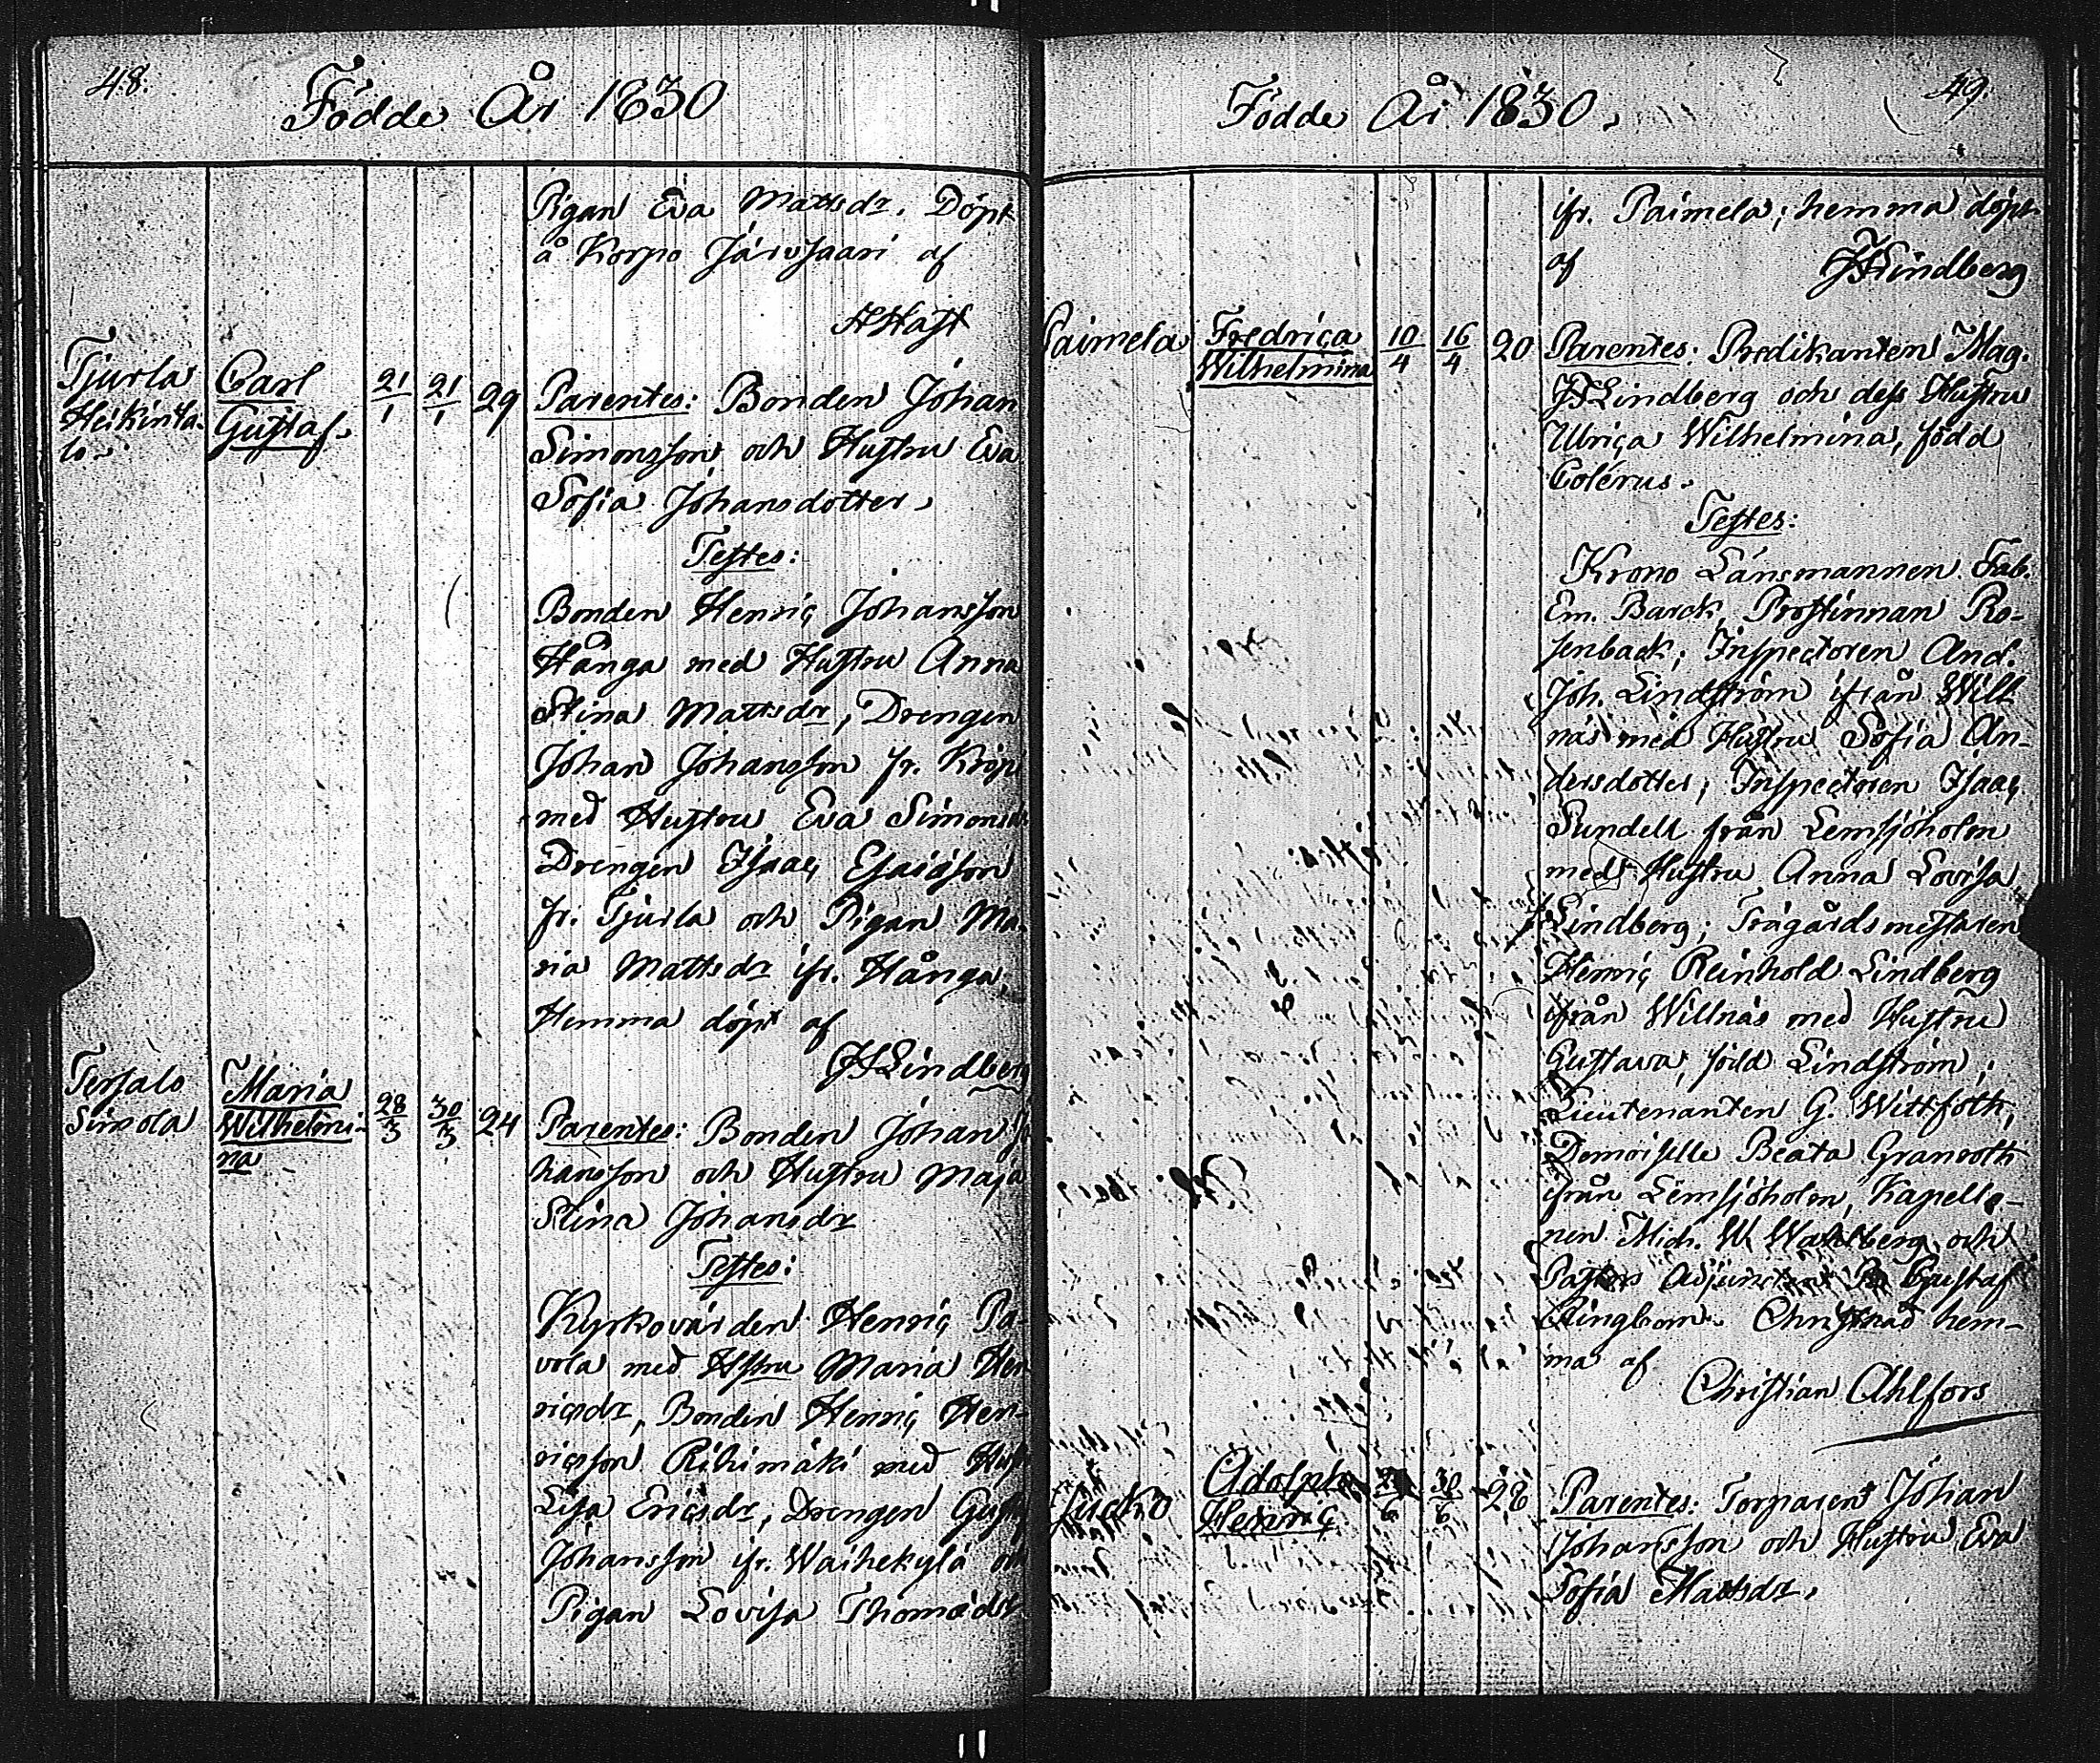 48.
Födde År 1830
Pigan Eva Mattsdr. Döpt
å Korpo Järvsaari af
AHast
Tjurla
Heikinta-
lo.
Carl
Gustaf.
21/1 21/1 29
Parentes: Bonden Johan
Simonsson och Hustru Eva
Sofia Johansdotter.
Testes:
Bonden Henric Johansson
Hånga med Hustru Anna
Stina Mattsdr, Drengen
Johan Johansson fr. Kröp
med Hustru Eva Simonsdr
Drengen Isaac Esaiæson
fr. Tjurla och Pigan Ma-
ria Mattsdr ifr. Hånga.
Hemma döpt af
JHLindberg
Tersalo
Simola
Maria
Wilhelmi-
na
28/3 30/3 24
Parentes: Bonden Johan Jo
hansson och Hustru Maja
Stina Johansdr
Testes:
Kyrkovärden Henric Pa-
vola med Hstru Maria Hen
ricsdr, Bonden Henric Hen-
ricsson Rihimäki med Hust
Lisa Ericsdr, Drengen Gust
Johansson ifr. Waihekylä och
Pigan Lovisa Thomædr
49.
Födde År 1830.
ifr. Paimela; hemma döpt
af JHLindberg
Paimela
Fredrica
Wilhelmina
10/4 16/4 20
Parentes: Predikanten Mag.
JHLindberg och dess Hustru
Ulrica Wilhelmina, född
Colérus.
Testes:
Krono Länsmannen Fab.
Em. Barck, Prostinnan Ro-
senback; Inspectoren And.
Joh. Lindström ifrån Will-
näs med Hustru Sofia An-
dersdotter; Inspectoren Isaac
Sundell från Lemsjöholm
med Hustru Anna Lovisa
Lindberg; Trägårdsmestaren
Henric Reinhold Lindberg
ifrån Willnäs med Hustru
Gustava, född Lindström;
Lieutenanten G. Wittfoth,
Demoiselle Beata Granroth
ifrån Lemsjöholm, Kapella-
nen Mich. W. Wahlberg och
Pastors Adjuncten Gustaf
Ringbom. Christnad hem-
ma af
Christian Ahlfors
Lucko
Adolph
Henric
30/6 28
Parentes: Torparen Johan
Johansson och Hustru Eva
Sofia Mattsdr.